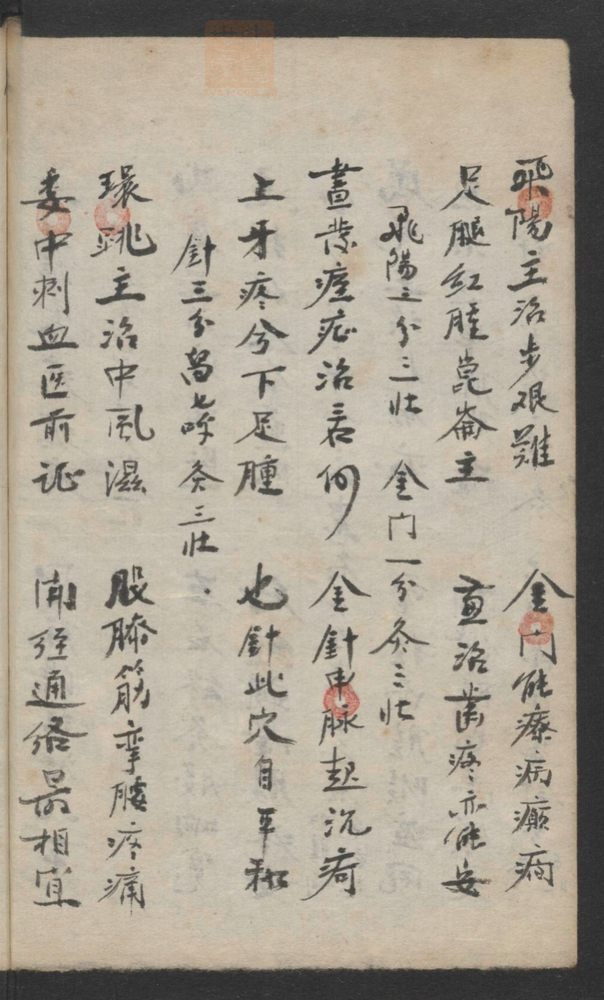 飛陽主治步艰難　金门能療病癲癇
足腿红腫崑崙主　兼治齒疼亦能安
飛陽三分三壮　金门一分灸三壮
晝發痓症治若何　金針申脉起沉疴
上牙疼兮下足腫　也針此穴自平和
針三分留七呼灸三壮
環跳主治中风濕　股膝筋挛腰疼痛
委中刺血医前证　開经通络最相宜